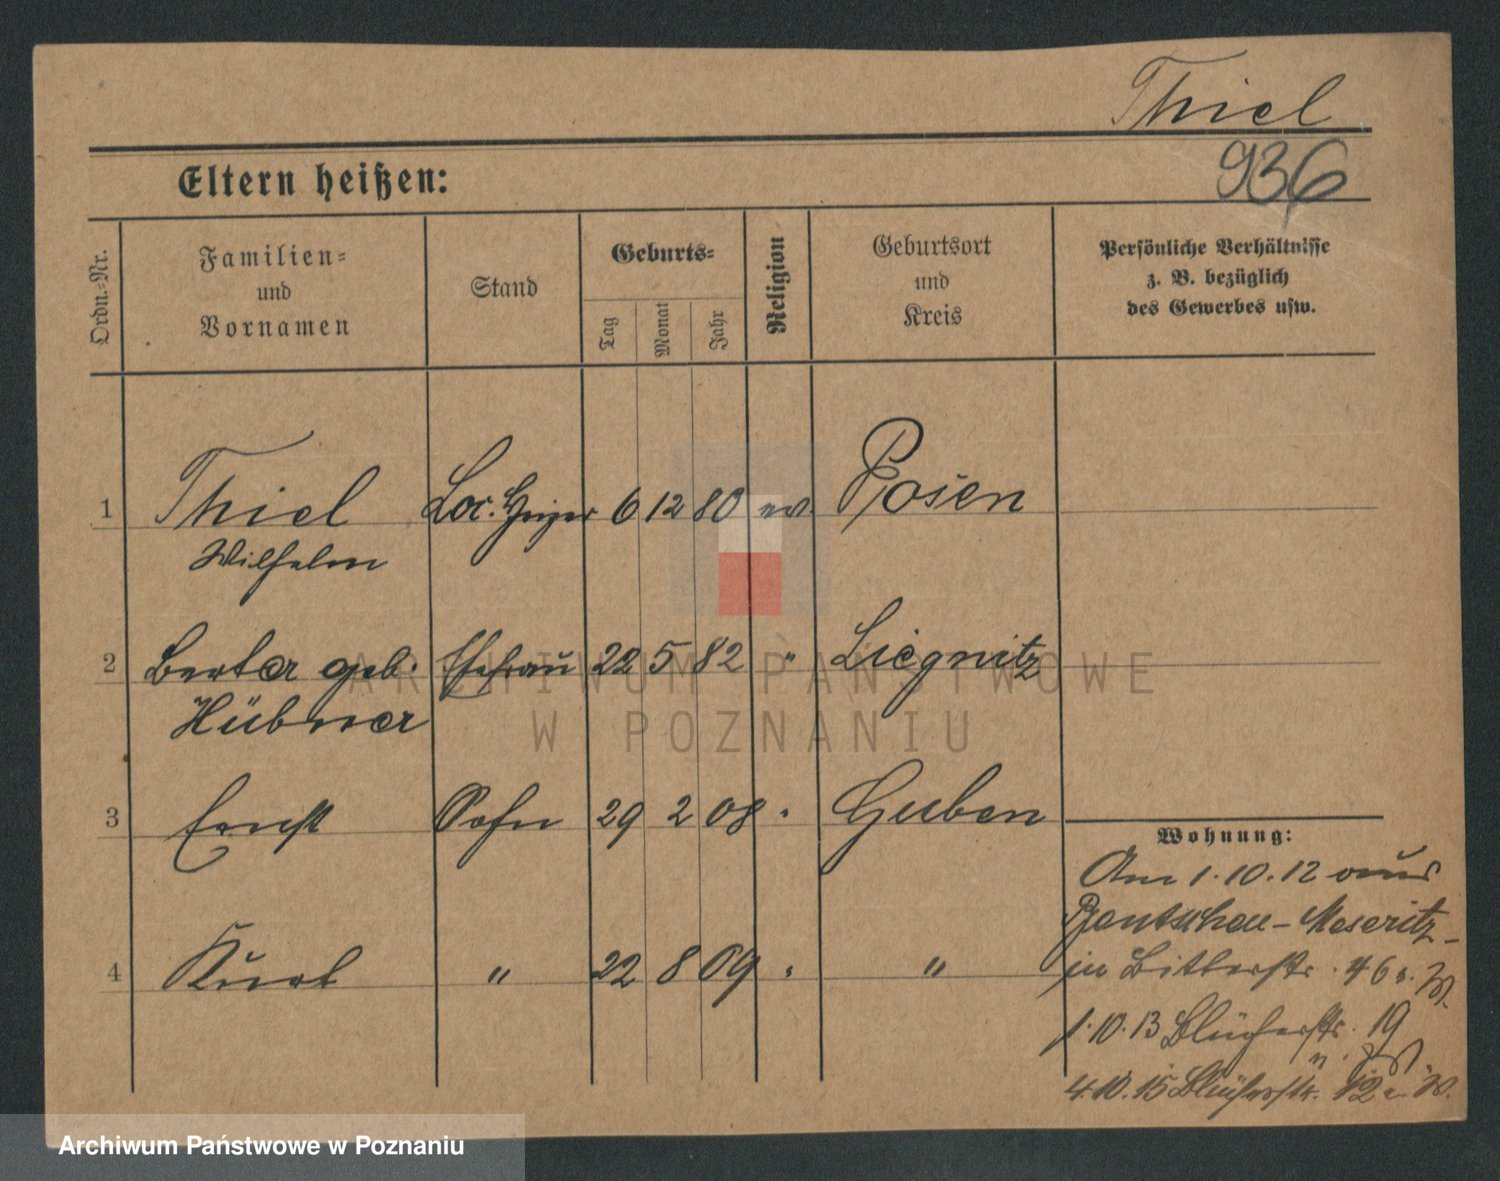 Thiel
936
Eltern heißen:
Ordn.-Nr.
Familien-
und
Vornamen
Stand
Geburts-
Tag
Monat
Jahr
Religion
Geburtsort
und
Kreis
Persönliche Verhältnisse
z. B. bezüglich
des Gewerbes usw.
1 Thiel Loc. Heizer 6 12 80 ev. Posen
Wilhelm
2 Berta geb. Ehefrau 22 5 82 " Liegnitz
Hübner
3 Ernst Sohn 29 2 08 " Guben
4 Kurt " 22 8 09 " "
Wohnung:
Am 1.10.12 aus
Bentschen-Meseritz-
in 46
1.10.13 Blücherstr. 19
4.10.15 Blücherstr. 12
ARCHIWUM PAŃSTWOWE
W POZNANIU
Archiwum Państwowe w Poznaniu